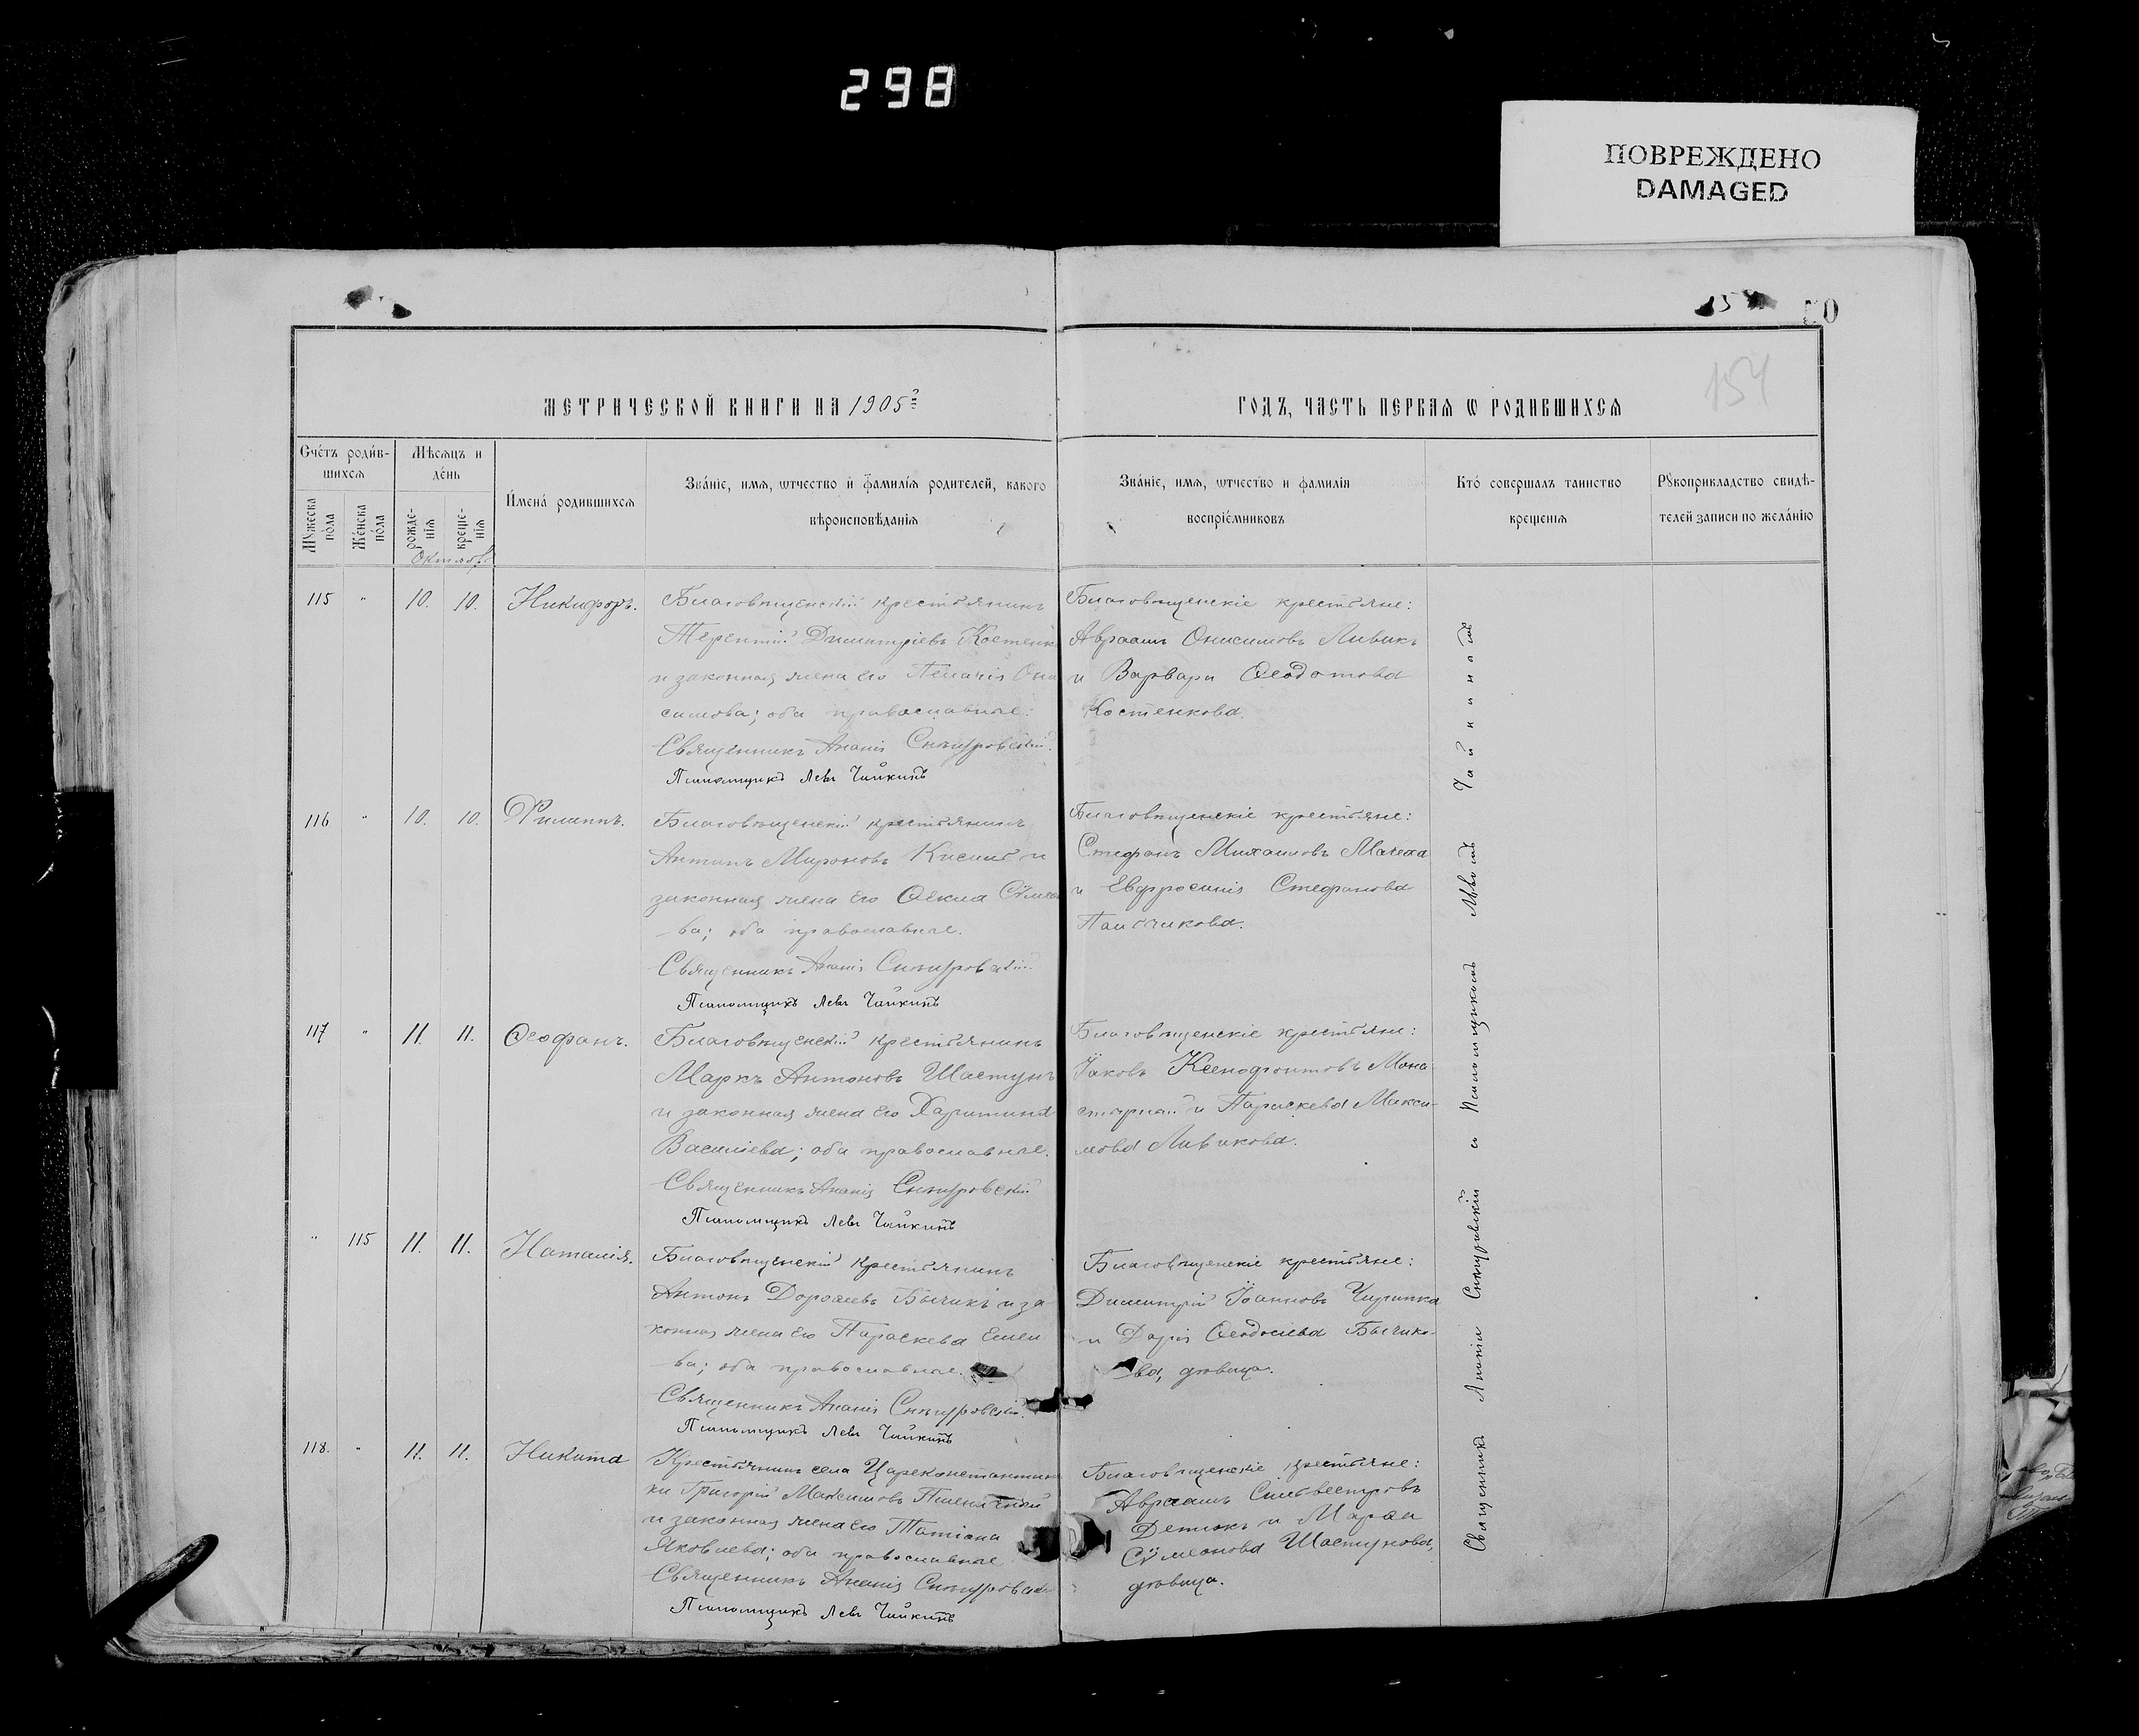 298
ПОВРЕЖДЕНО
DAMAGED
50
154
МЕТРИЧЕСКОЙ КНИГИ НА 1905 ГОДЪ, ЧАСТЬ ПЕРВАЯ Ѡ РОДИВШИХСЯ
Счетъ родив-
шихся
Мужеска пола
Женска пола
Мѣсяцъ и
день
рожде-
нія
креще-
нія
Октябрь
Имена родившихся
Званіе, имя, ѡтчество и фамилія родителей, какого
вѣроисповѣданія
Званіе, имя, ѡтчество и фамилія
воспріемниковъ
Кто совершалъ таинство
крещенія
Рукоприкладство свидѣ-
телей записи по желанію
115 " 10. 10. Никифоръ.
Благовѣщенскій крестьянинъ
Терентій Димитріевъ Костенк
и законная жена его Пелагія Они
симова; оба православные.
Священникъ Ананія Снѣгуровскій.
Псаломщикъ Левъ Чайкинъ
Благовѣщенскіе крестьяне:
Авраамъ Онисимовъ Ливикъ
и Варвара Ѳеодотова
Костенкова.
116 " 10. 10. Филиппъ.
Благовѣщенскій крестьянинъ
Антипъ Мироновъ Кисиль и
законная жена его Ѳекла Сѵмео
ва; оба православные.
Священникъ Ананія Снѣгуровскій.
Псаломщикъ Левъ Чайкинъ
Благовѣщенскіе крестьяне:
Стефанъ Михаиловъ Малеха
и Евфросинія Стефанова
Пальчикова.
117 " 11. 11. Ѳеофанъ.
Благовѣщенскій крестьянинъ
Маркъ Антоновъ Шастунъ
и законная жена его Харитина
Василіева; оба православные.
Священникъ Ананія Снѣгуровскій
Псаломщикъ Левъ Чайкинъ
Благовѣщенскіе крестьяне:
Іаковъ Ксенофонтовъ Мона-
стырный и Параскева Макси-
мова Ливикова.
" 115 11. 11. Наталія.
Благовѣщенскій крестьянинъ
Антонъ Дороѳеевъ Бычикъ и за-
конная жена его Параскева
ва; оба православные.
Священникъ Ананія Снѣгуровскій.
Псаломщикъ Левъ Чайкинъ
Благовѣщенскіе крестьяне:
Димитрій Іоанновъ Чирипка
и Дарія Ѳеодосіева Бычико-
ва, дѣвица.
118. " 11. 11. Никита
Крестьянинъ села Цареконстантинов
ки Григорій Максимовъ Пшеничный
и законная жена его Татіана
Яковлева; оба православные
Священникъ Ананія Снѣгуровскій
Псаломщикъ Левъ Чайкинъ
Благовѣщенскіе крестьяне:
Авраамъ Сильвестровъ
и Марѳа
Сѵмеонова Шастунова,
дѣвица.
Священникъ Ананіи Снѣгуровскій и Псаломщикомъ Львомъ Чайкинымъ